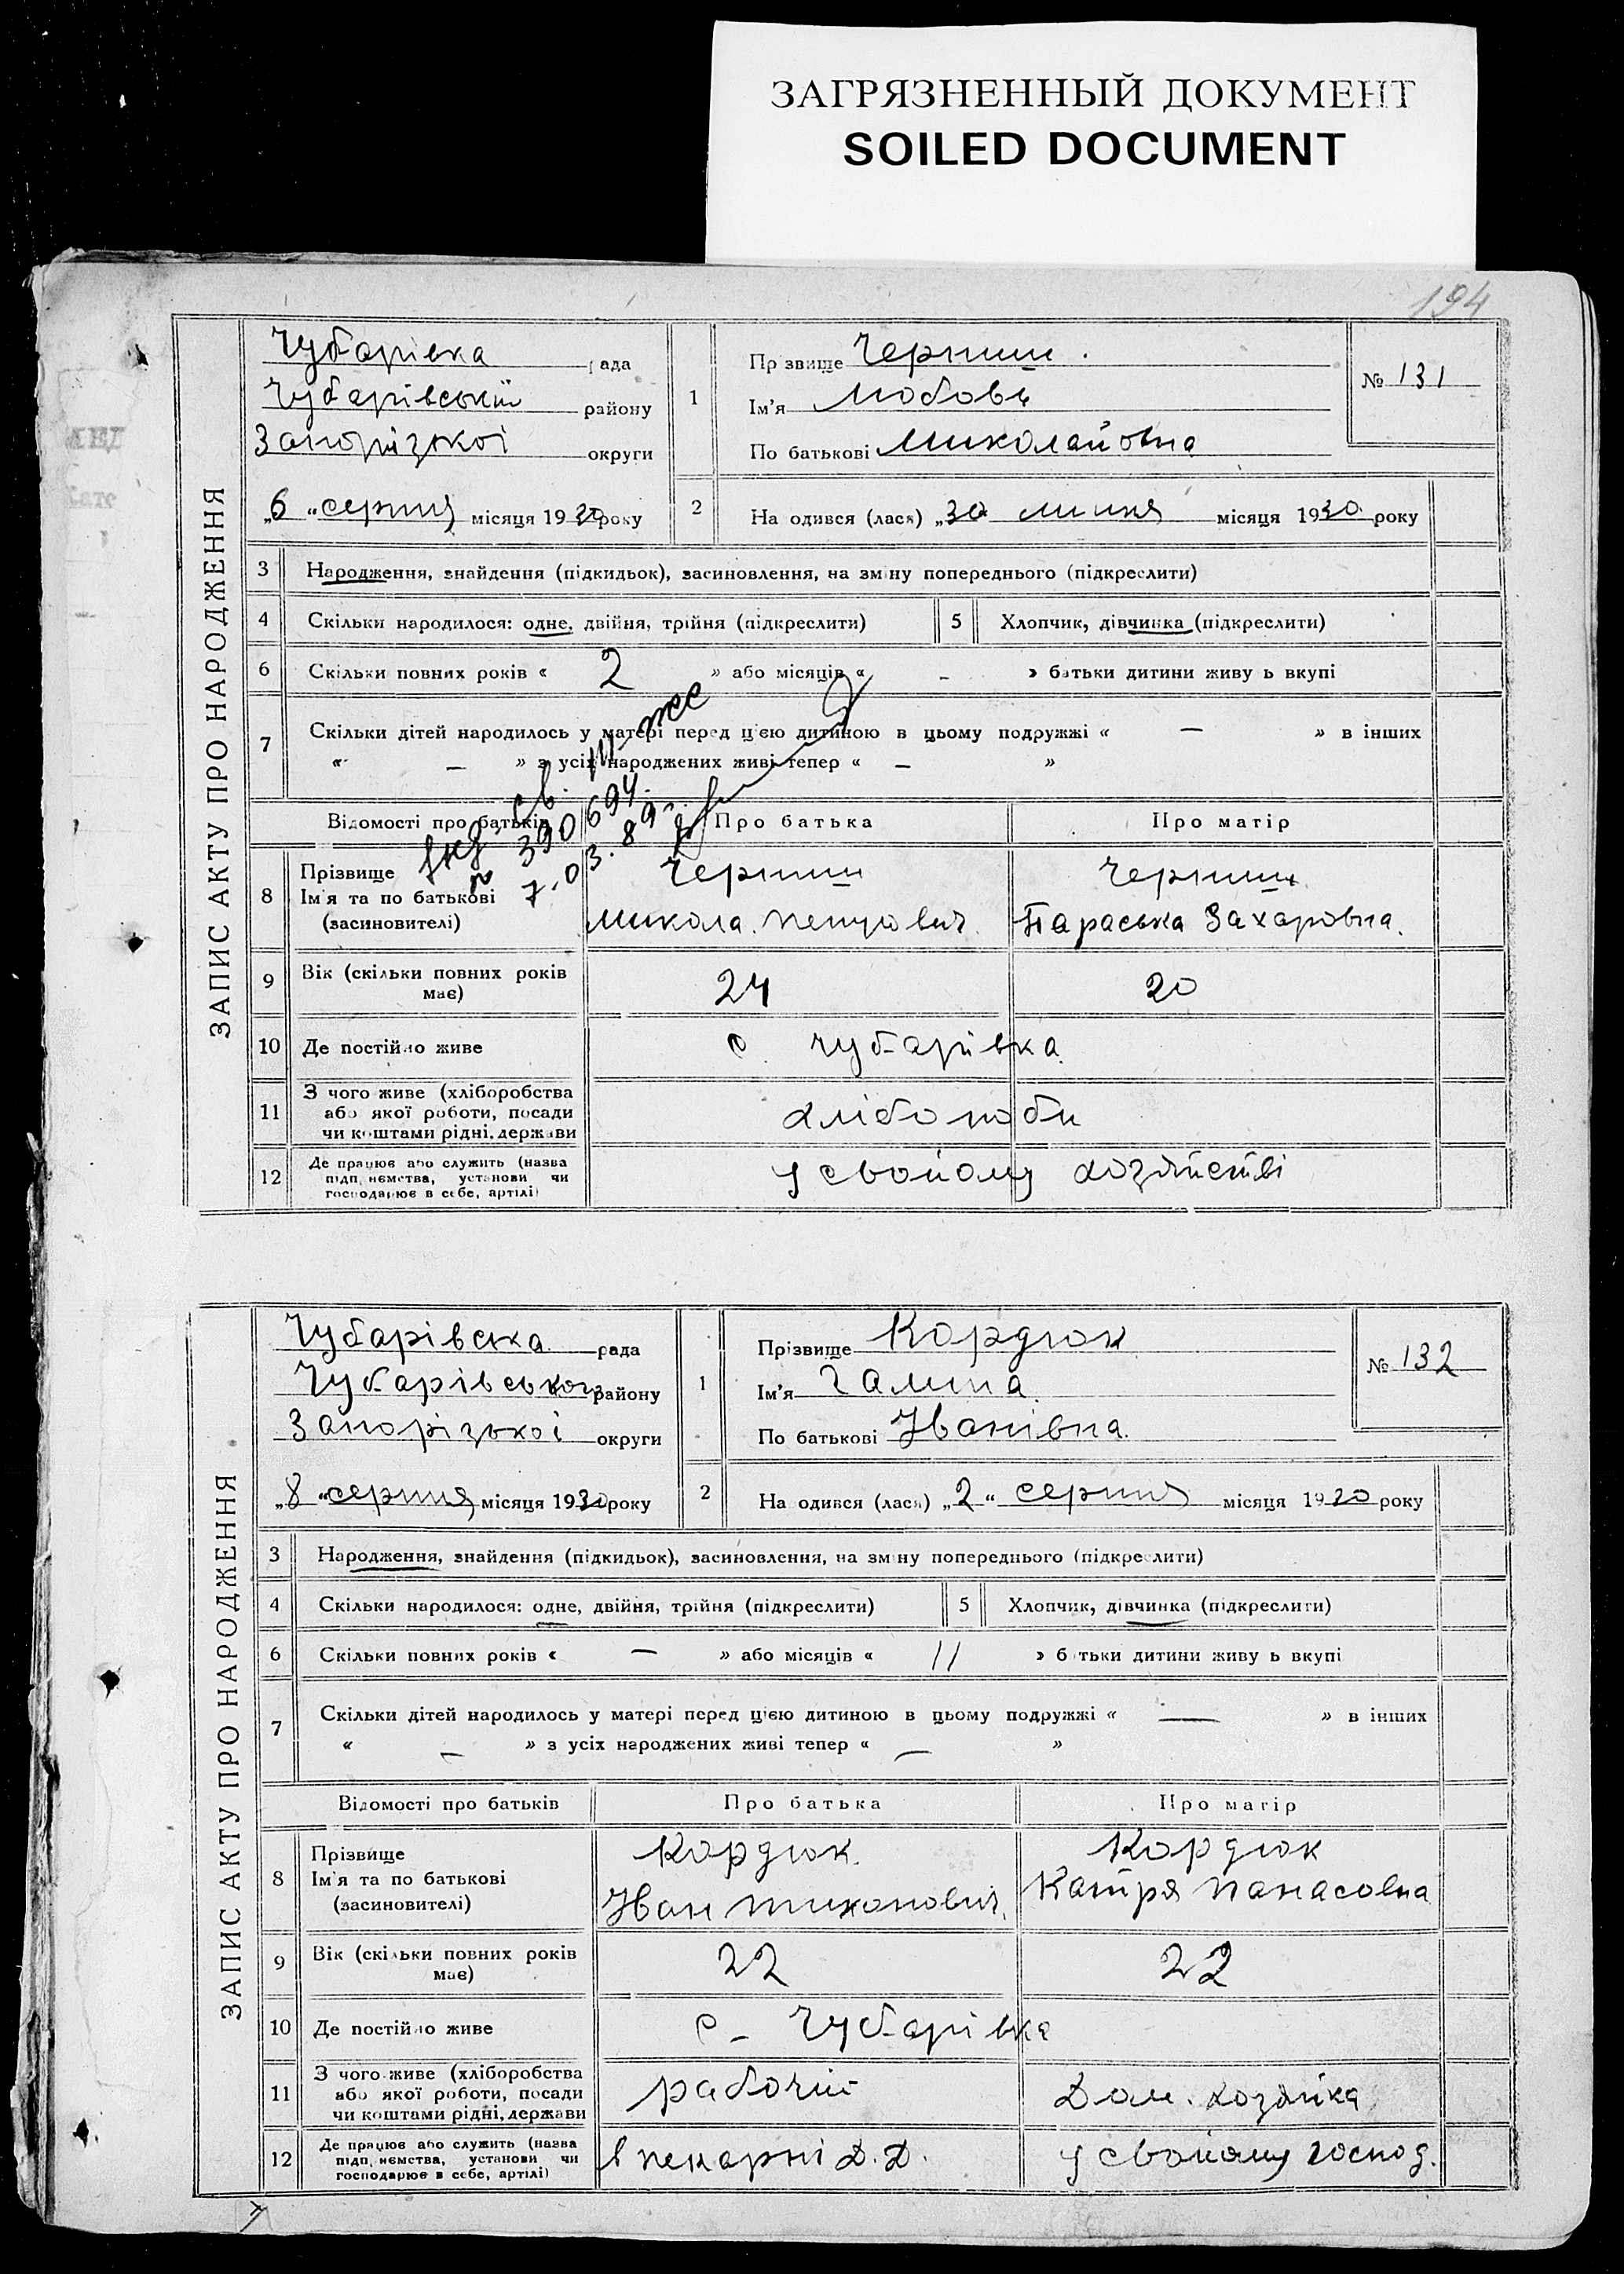 ЗАГРЯЗНЕННЫЙ ДОКУМЕНТ
SOILED DOCUMENT
194
ЗАПИС АКТУ ПРО НАРОДЖЕННЯ
Чубарівка рада
Чубарівській району
Запорізької округи
„6“ серпня місяця 1930 року
1
Прізвище Черниш
Ім'я Любовь
По батькові Миколайовна
№ 131
2 Народився (лася) „30 липня місяця 1930 року
3 Народження, знайдення (підкидьок), засиновлення, на зміну попереднього (підкреслити)
4 Скільки народилося: одне, двійня, трійня (підкреслити) 5 Хлопчик, дівчинка (підкреслити)
6 Скільки повних років « 2 » або місяців « - » батьки дитини живуть вкупі
7 Скільки дітей народилось у матері перед цією дитиною в цьому подружжі « — » в інших
« — » з усіх народжених живі тепер « — »
св.
№ 390694.
7.03.89г.
Відомості про батьків Про батька Про матір
8 Прізвище
Ім'я та по батькові
(засиновителі)
Черниш
Микола Петрович
Черниш
Параська Захаровна.
9 Вік (скільки повних років має) 24 20
10 Де постійно живе с. Чубарівка
11 З чого живе (хліборобства
або якої роботи, посади
чи коштами рідні, держави
хлібороби
12 Де працює або служить (назва
підприємства, установи чи
господарює в себе, артілі)
у свойому хозяйстві
ЗАПИС АКТУ ПРО НАРОДЖЕННЯ
Чубарівська рада
Чубарівського району
Запорізької округи
„8“ серпня місяця 1930 року
1
Прізвище Кордюк
Ім'я Галина
По батькові Іванівна.
№ 132
2 Народився (лася) „2“ серпня місяця 1930 року
3 Народження, знайдення (підкидьок), засиновлення, на зміну попереднього (підкреслити)
4 Скільки народилося: одне, двійня, трійня (підкреслити) 5 Хлопчик, дівчинка (підкреслити)
6 Скільки повних років « — » або місяців « 11 » батьки дитини живуть вкупі
7 Скільки дітей народилось у матері перед цією дитиною в цьому подружжі « — » в інших
« — » з усіх народжених живі тепер « — »
Відомості про батьків Про батька Про матір
8 Прізвище
Ім'я та по батькові
(засиновителі)
Кордюк
Іван Тихонович.
Кордюк
Катря Панасовна
9 Вік (скільки повних років має) 22 22
10 Де постійно живе с- Чубарівка
11 З чого живе (хліборобства
або якої роботи, посади
чи коштами рідні, держави
рабочий
Дом. хозяйка
12 Де працює або служить (назва
підприємства, установи чи
господарює в себе, артілі)
в пекарні Д.Д.
у свойому господ.